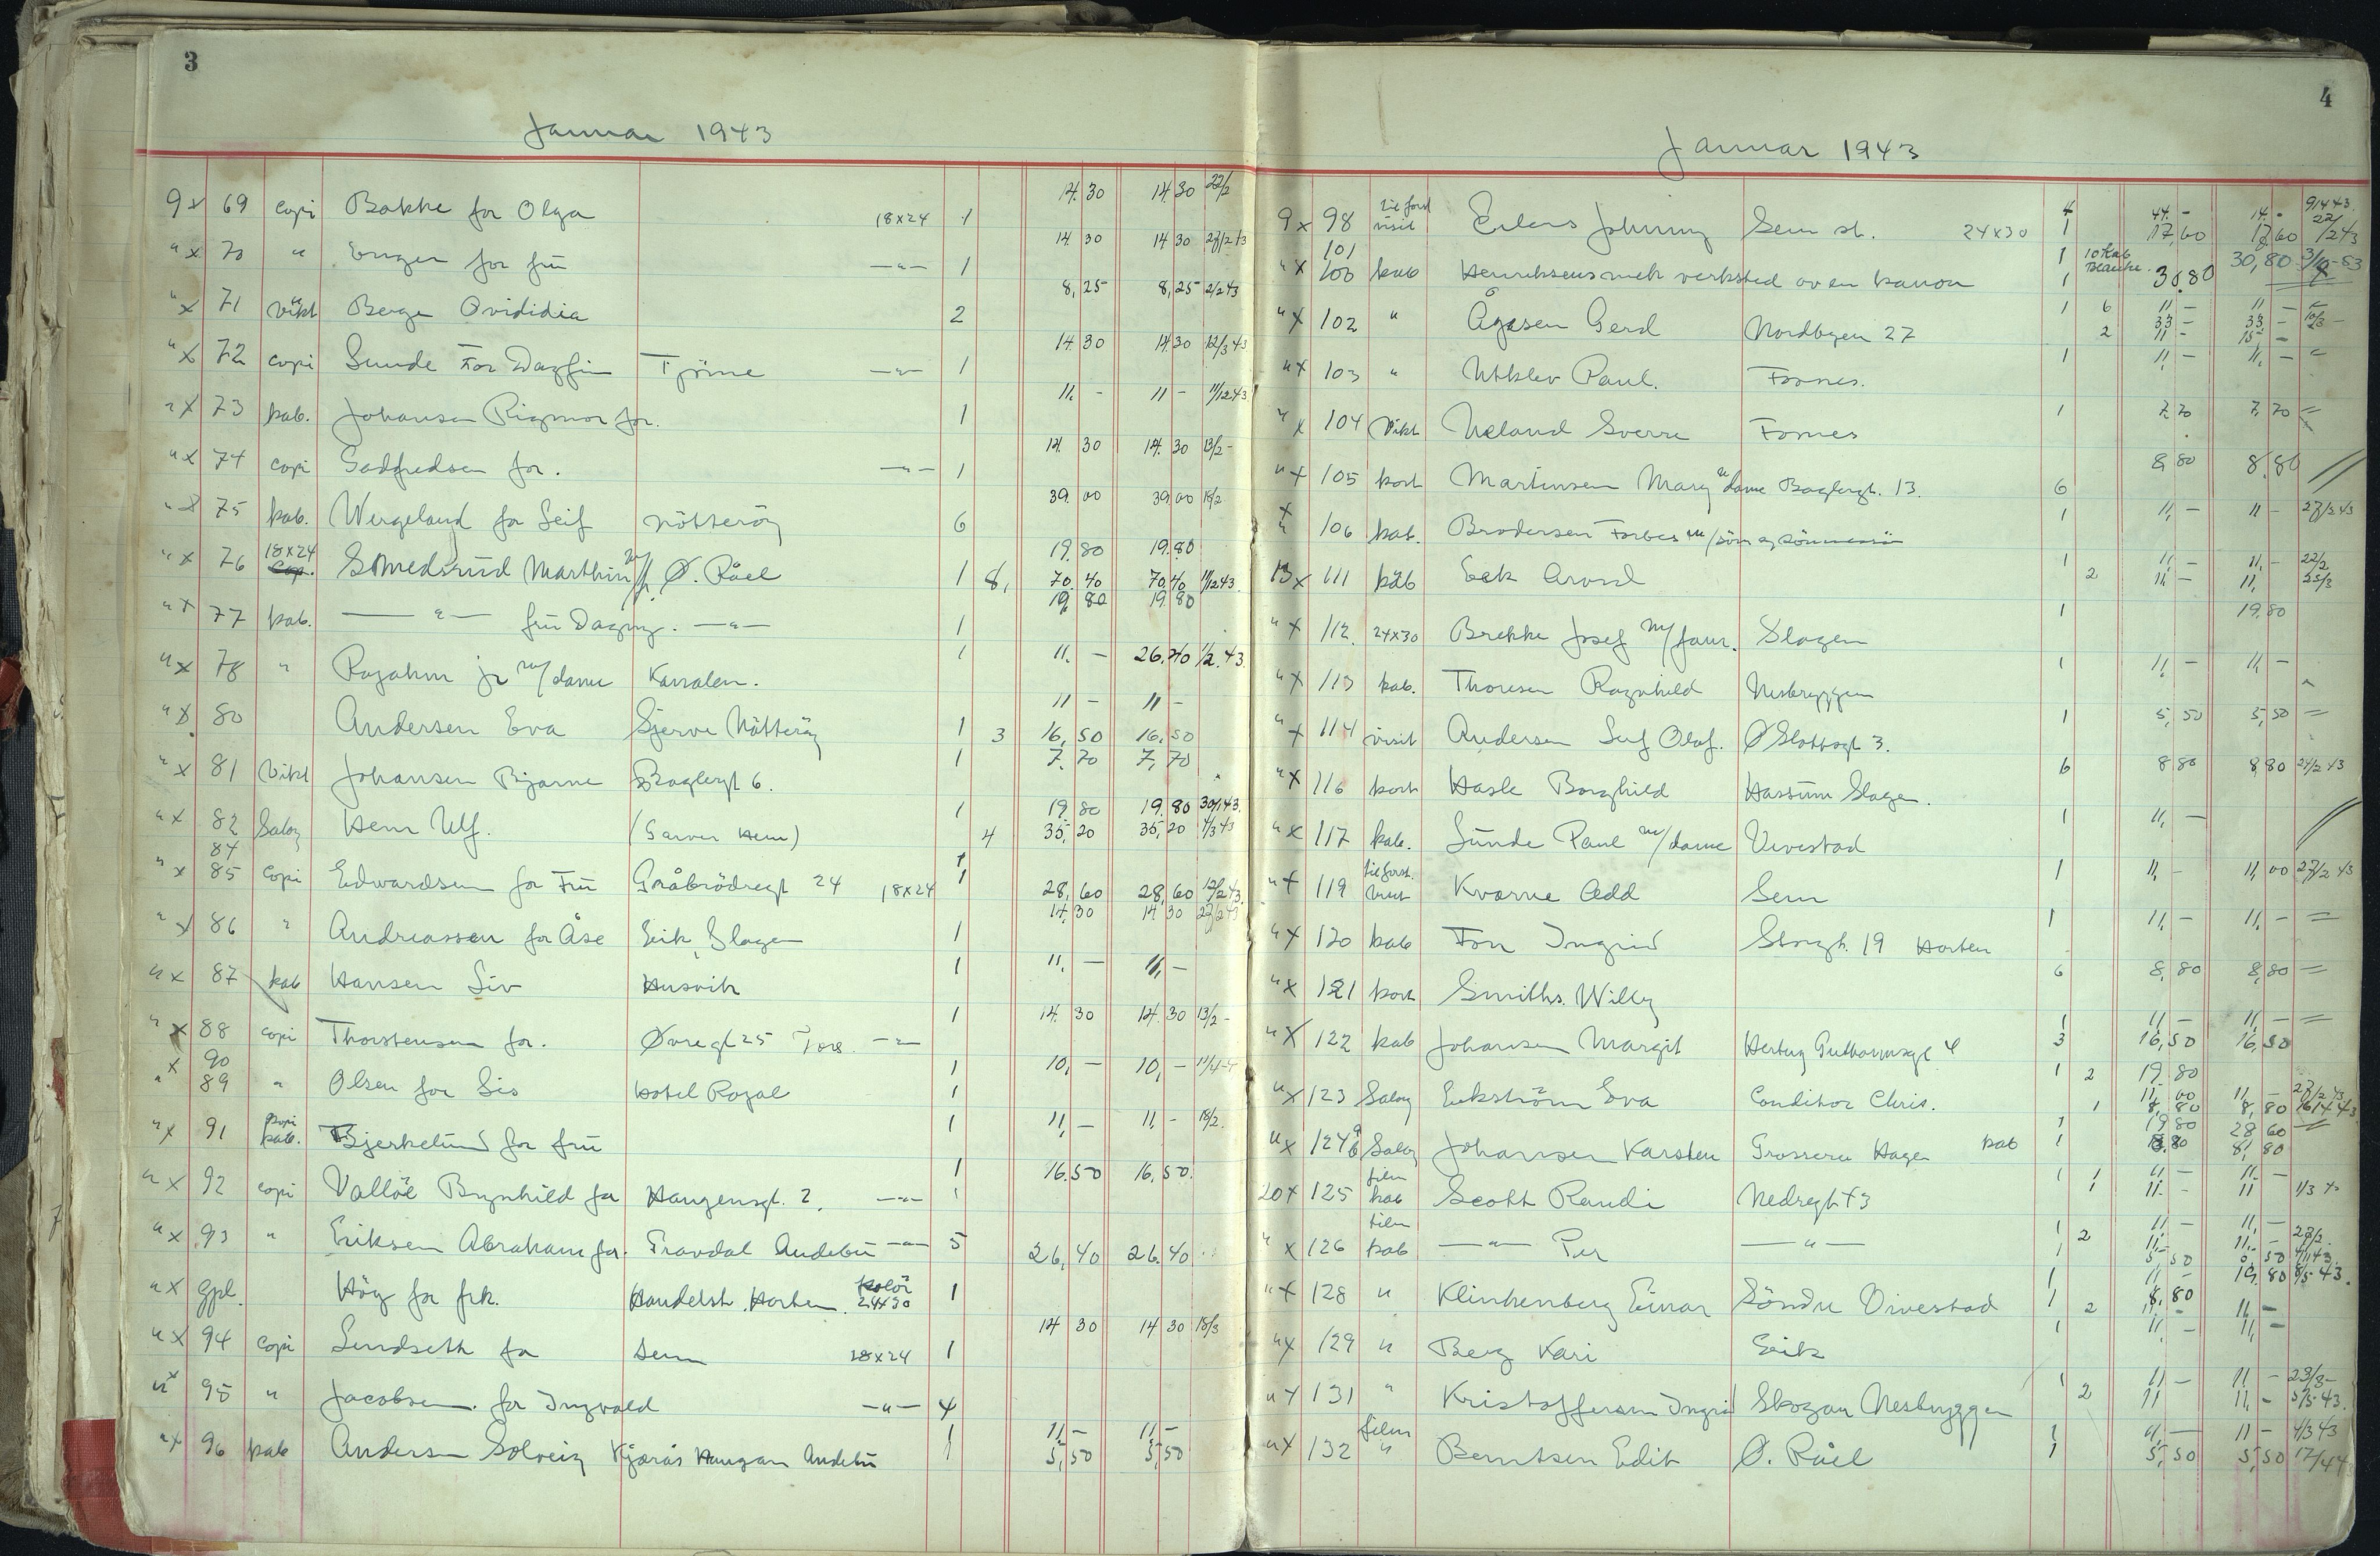 3
Januar 1943
9 x 69 copi Bakke for Olga 18x24 1 14.30 14.30 22/2
" x 70 " Enger for fru —"— 1 14 30 14 30
" x 71 vikt Berge Ovididia 2 8,25 8,25 2/2 43
" x 72 copi Sunde For Dagfin Tjöme —"— 1 14.30 14 30 12/3 43
" x 73 kab. Johansen Rigmor for. 1 11. - 11 - 11/12 43
" x 74 copi Godfredsen for. —"— 1 14. 30 14. 30 13/2 -
" x 75 kab. Wergeland for Leif Nötteröy 6 39.00 39.00
" x 76 18x24 Smedsrud Marthin Ø. Råel 1 8, 19.80 19.80
70.40 70.40 11/2 43
" x 77 kab. —"— fru Dagny. —"— 1 19.80 19.80
" x 78 " m/dame Kanalen. 1 11. - 26.40 1/2. 43
" x 80 Andersen Eva Gjerve Nötteröy 1 11 - 11 -
3 16,50 16.50
" x 81 Vikt Johansen Bjarne Baglergt 6. 1 7.70 7,70
" x 82 Salon Hem Ulf. (Garver Hem) 1 19.80 19.80 30/1 43.
4 35,20 35,20 4/3 43
84
" x 85 copi Edwardsen for Fru Gråbrödregt 24 18x24 1 28,60 28,60 12/2 43.
" x 86 " Andreassen for Åse Eik, Slagen 1 14,30 14 30
" x 87 kab Hansen Liv Husvik 1 11, — 11, -
" x 88 copi Thorstensen for. Øvregt 25 —"— 1 14. 30 14. 30 13/2 -
x 90 1 10, - 10, -
" 89 " Olsen for Lis Hotel Royal 1
" x 91 copi kab. Bjerkelund for fru 1 11, - 11, - 18/2.
" x 92 copi Vallöe Brynhild for Haugensgt. 2, —"— 1 16.50 16,50.
" x 93 " Eriksen Abraham for. Travdal Andebu —"— 5 26,40 26.40
" x gpl. Höy for frk. Handelsh. Horten. kolör 24x30 1
" x 94 copi Lindseth for Sem 18x24 1 14 30 14 30 18/3
" x 95 " Jacobsen. for Ingvald —"— 4
" x 96 kab Andersen Solveig Kjærås Haugan Andebu 1 11 - 11 -
1 5,50 5,50
4
Januar 1943
9 x 98 visit Eilers Johnny Sem st. 24x30 1 17,60 17,60
101
" x 100 kab Henriksens mek verksted av en kanon 1 10 kab 30.80 30,80
" x 102 " Ågesen Gerd Nordbyen 27 1 6 11 - 11 -
33 - 33 -
2 11 - 15 -
" x 103 " Utklev Paul. Fornes. 1 11, - 11, -
" x 104 Vikt Ueland Sverre Fornes 1 7,70 7,70
" x 105 kort Martinsen Mary m/dame Baglergt. 13. 6 8,80 8,80
" x 106 kab. Brodersen Forbes m/sön og 1 11, - 11 - 27/2 43
13 x 111 kab Eek Arvid 1 11, - 11, - 22/2
2 11, - 11, 25/3
" x 112. 24x30 Brekke Josef m/fam. Slagen 1 19,80
" x 113 kab. Thoresen Ragnhild Nesbryggen 1 11, - 11, -
" x 114 visit Andersen Leif Olaf. Ø Slottsgt 3. 1 5,50 5,50
" x 116 kort Hasle Borghild Hassum Slagen. 6 8 80 8,80 24/2 43
" x 117 kab. Sunde Paul m/dame Vivestad 1 11, —
" x 119 Kvarne Odd Sem 1 11, - 11, 00 27/2 43
" x 120 kab Fon Ingrid Storgt. 19 Horten 1 11, - 11, -
" x 121 kort Smiths. Willy 6 8,80 8,80
" x 122 kab Johansen Margit Hertug Guthormsgt 4 1 11 - 11, -
3 16,50 16,50
" x 123 Salon Eekström Eva Conditor Chris. 1 2 19.80
11.00 11, - 27/2 43.
1 8,80 8,80 16/4 43
" x 124 Salon Johansen Karsten Grosserer Hagen kab 1 19 80 28 60
8,80
20 x 125 film kab Scott Randi Nedregt 43 1 1 11 - 11 -
1 11. - 11 1/3 43
" x 126 film kab —"— Per —"— 1 2 11 - 11, -
5 50 5,50
" x 128 " Klinkenberg Einar Söndre Vivestad 1 11 - 19,80 8/5 43.
1 2 8,80 11, -
" x 129 " Berg Kari Eik 1 11, - 11, -
" x 131 " Kristoffersen Ingrid Skogan Nesbryggen 1 11 - 11, - 23/3 -
2 11 11, - 5/5 43.
" x 132 film " Berntsen Edit Ø. Råel 1 11, — 11 - 4/3 43
1 5,50 5,50